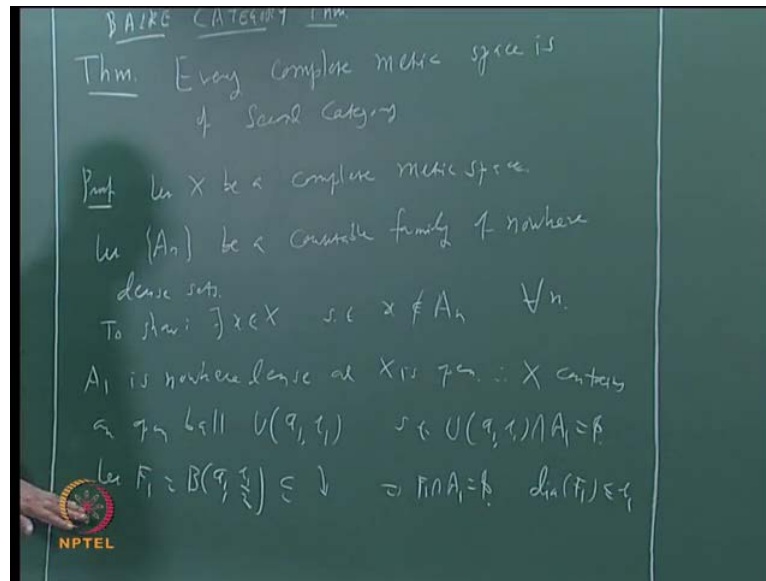 BAIRE CATEGORY Thm.
Thm. Every complete metric space is
of Second Category
Proof Let X be a complete metric space.
Let {An} be a countable family of nowhere
dense sets.
To show: ∃ x ∈ X s.t x ∉ An ∀n.
A1 is nowhere dense at X is open. ∴ X contains
an open ball U(a1, r1) s.t. U(a1, r1) ∩ A1 = ϕ.
Let F1 = B(a1, r1/2) ⊆ ↓ ⇒ F1 ∩ A1 = ϕ. dia(F1) ≤ r1
NPTEL